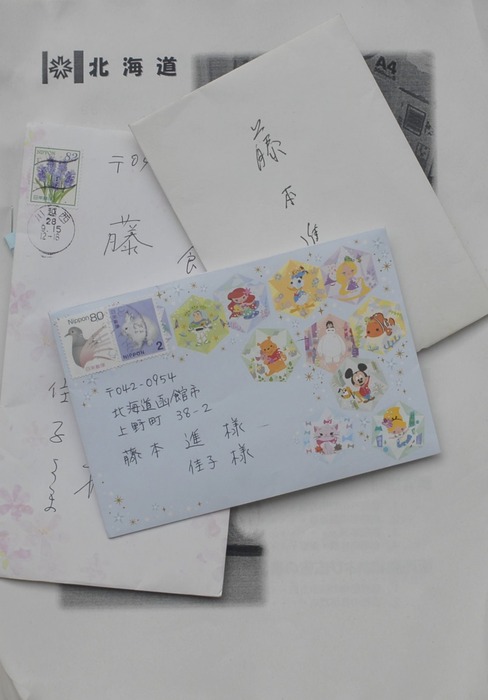 北海道
A4
藤
本
進
NIPPON 82
日本郵便
川越西
28
9.15
12-18
〒04
藤
佳
子
さま
NIPPON 80
日本郵便
NIPPON 2
〒042-0954
北海道函館市
上野町 38-2
藤本 進 様
佳子 様